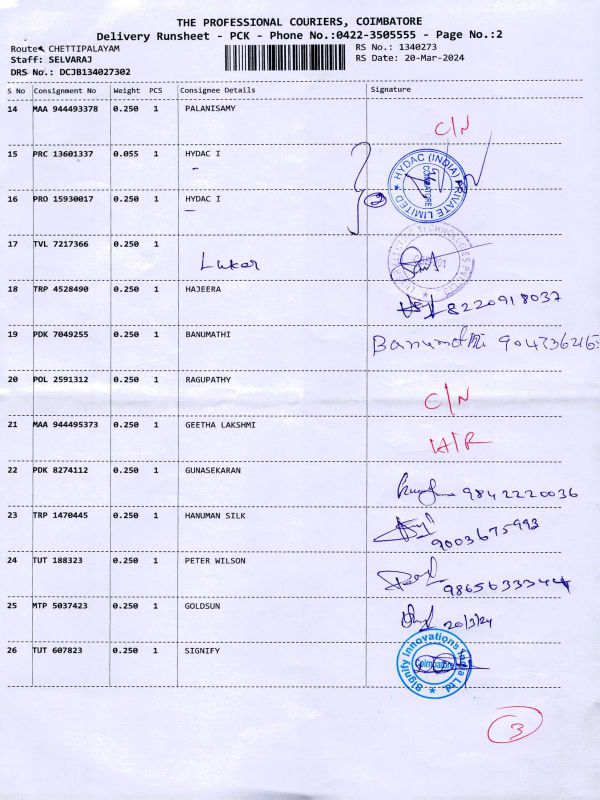 THE PROFESSIONAL COURIERS, COIMBATORE
Delivery Runsheet - PCK - Phone No.:0422-3505555 - Page No.:2
Route: CHETTIPALAYAM RS No.: 1340273
Staff: SELVARAJ RS Date: 20-Mar-2024
DRS No.: DCJB134027302
S No Consignment No Weight PCS Consignee Details Signature
14 MAA 944493378 0.250 1 PALANISAMY C/N
15 PRC 13601337 0.055 1 HYDAC I
HYDAC (INDIA) PRIVATE LIMITED
COIMBATORE
16 PRO 15930017 0.250 1 HYDAC I 2
17 TVL 7217366 0.250 1
Luker
18 TRP 4528490 0.250 1 HAJEERA 8220918037
19 PDK 7049255 0.250 1 BANUMATHI Banumathi
20 POL 2591312 0.250 1 RAGUPATHY C/N
21 MAA 944495373 0.250 1 GEETHA LAKSHMI
22 PDK 8274112 0.250 1 GUNASEKARAN 9842220036
23 TRP 1470445 0.250 1 HANUMAN SILK 9003675993
24 TUT 188323 0.250 1 PETER WILSON
25 MTP 5037423 0.250 1 GOLDSUN 20/3/24
26 TUT 607823 0.250 1 SIGNIFY
Signify Innovations India Ltd.
Coimbatore
3